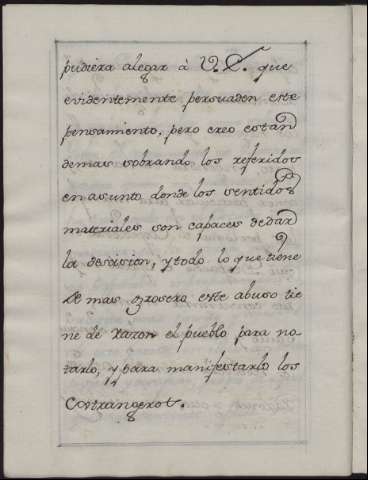 pudiera alegar à V. E. que
evidentemente persuaden este
pensamiento, pero creo estan
demas sobrando los referidos
en asunto donde los sentidos
materiales son capaces de dar
la desicion, y todo lo que tiene
de mas grosero este abuso tie
ne de razon el pueblo para no
tarlo, y para manifestarlo los
Extrangeros.